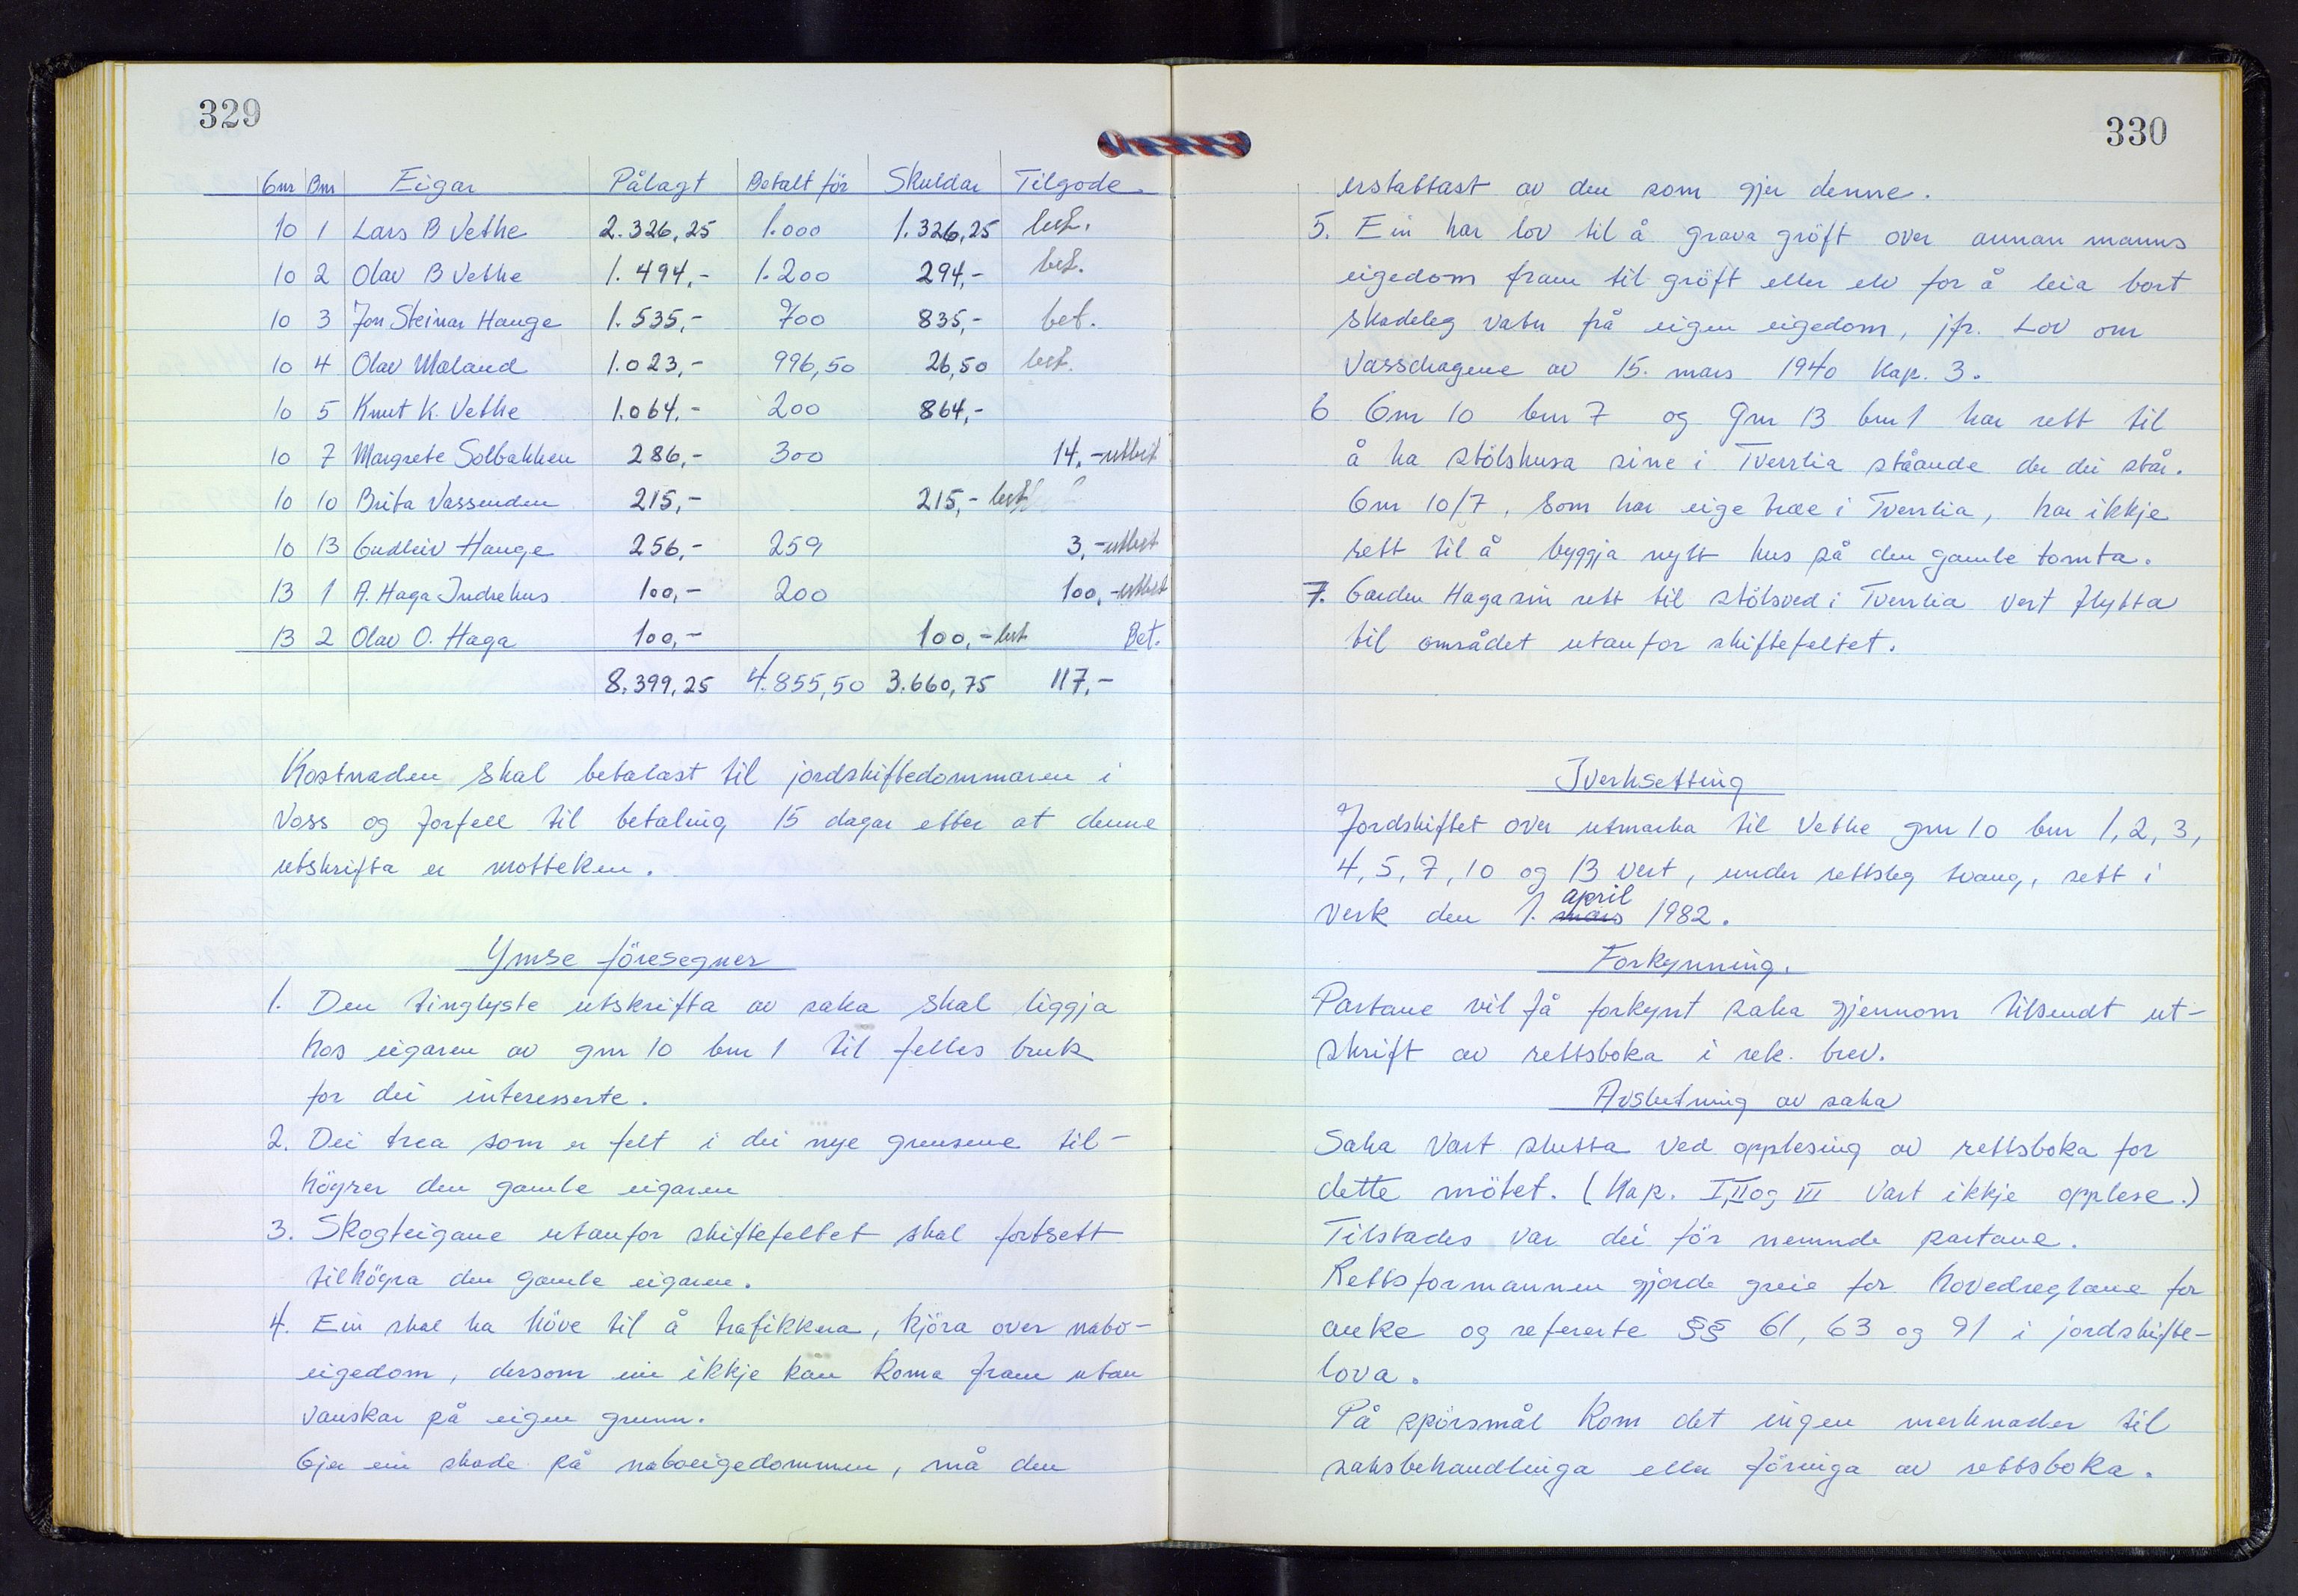 329
Gnr Bnr Eigar Pålagt Betalt för Skuldar Tilgode
10 1 Lars B Vethe 2.326,25 1.000 1.326,25 bet.
10 2 Olav B Vethe 1.494,- 1.200 294,- bet.
10 3 Jon Steinar Hauge 1.535,- 700 835,- bet.
10 4 Olav Mæland 1.023,- 996,50 26,50 bet.
10 5 Knut K. Vethe 1.064,- 200 864,-
10 7 Margrete Solbakken 286,- 300 14,- utbet
10 10 Brita Vassenden 215,- 215,- bet
10 13 Gudleiv Hauge 256,- 259 3,- utbet
13 1 A. Haga Indrehus 100,- 200 100,- utbet
13 2 Olav O. Haga 100,- 100,- bet Bet.
8.399,25 4.855,50 3.660,75 117,-
Kostnaden skal betalast til jordskiftedommaren i
Voss og forfell til betaling 15 dagar etter at denne
utskrifta er motteken.
Ymse föresegner
1. Den tinglyste utskrifta av saka skal liggja
hos eigaren av gnr 10 bnr 1 til felles bruk
for dei interesserte.
2. Dei trea som er felt i dei nye grensene til-
høyrer den gamle eigaren
3. Skogteigane utanfor skiftefeltet skal fortsett
tilhöyra den gamle eigaren.
4. Ein skal ha höve til å trafikkera, kjöra over nabo-
eigedom, dersom ein ikkje kan koma fram utan
vanskar på eigen grunn.
Gjer ein skade på naboeigedommen, må den
330
erstattast av den som gjer denne.
5. Ein har lov til å grava gröft over annan manns
eigedom fram til gröft eller elv for å leia bort
skadeleg vatn frå eigen eigedom, jfr. Lov om
Vassdragene av 15. mars 1940 Kap. 3.
6 Gnr 10 bnr 7 og gnr 13 bnr 1 har rett til
å ha stölshusa sine i Tverrlia ståande der dei står.
Gnr 10/7, som har eige træe i Tverrlia, har ikkje
rett til å byggja nytt hus på den gamle tomta.
7. Garden Haga sin rett til stölsved i Tverrlia vert flytta
til området utanfor skiftefeltet.
Iverksetting
Jordskiftet over utmarka til Vethe gnr 10 bnr 1, 2, 3,
4, 5, 7, 10 og 13 vert, under rettsleg tvang, sett i
april
verk den 1. mars 1982.
Forkynning.
Partane vil få forkynt saka gjennom tilsendt ut-
skrift av rettsboka i rek. brev.
Avslutning av saka
Saka vart slutta ved opplesing av rettsboka for
dette mötet. (Kap. I, II og III vart ikkje opplese.)
Tilstades var dei för nemnde partane.
Rettsformannen gjorde greie for hovedreglane for
anke og refererte §§ 61, 63 og 91 i jordskifte-
lova.
På spörsmål kom det ingen merknader til
saksbehandlinga eller föringa av rettsboka.